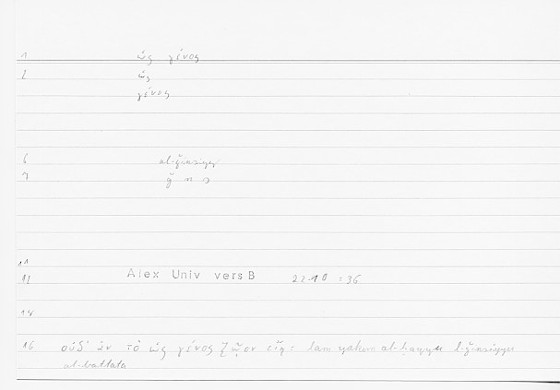 1 ὡς γένος
2 ὡς
γένος
6 al-ǧinsiyy
7 ǧ n s
11
12 Alex Univ vers B 22 10 : 36
14
16 οὐδ' ἂν τὸ ὡς γένος ζῷον εἴη : lam yakun al-ḥayyu l-ǧinsiyyu
al-battata